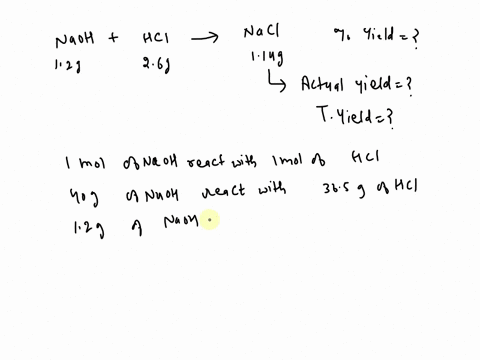 NaOH + HCl → NaCl % Yield = ?
1.2g 2.6g 1.14g
↳ Actual yield = ?
T. Yield = ?
1 mol of NaOH react with 1 mol of HCl
40 g of NaOH react with 36.5 g of HCl
1.2g of NaOH